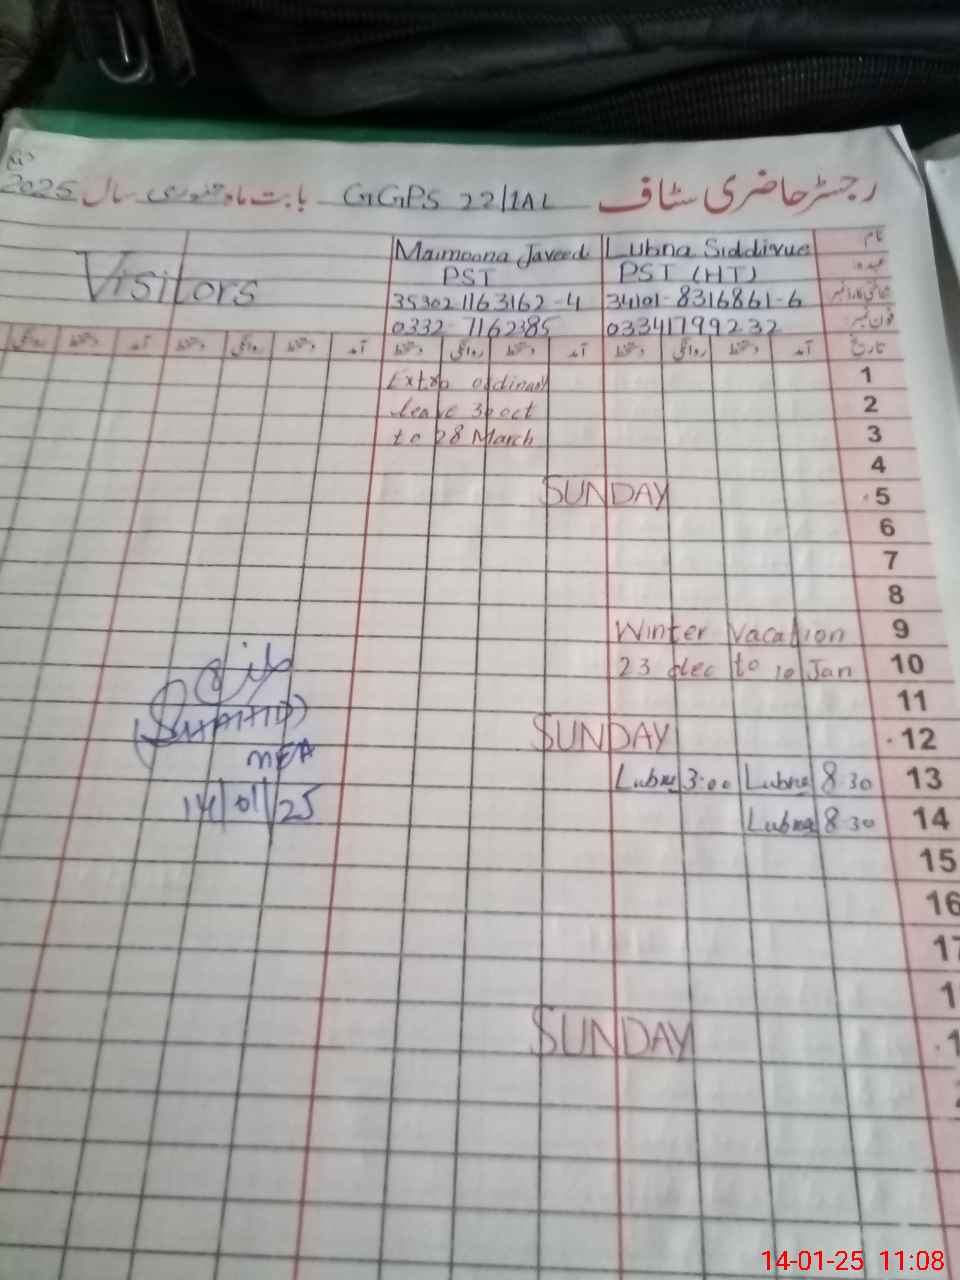 رجسٹر حاضری سٹاف GGPS 22/1AL بابت ماہ جنوری سال 2025
نام Lubna Siddivue Maimoona Javeed Visitors
عہدہ PST (HT) PST
شناختی کارڈ نمبر 34101-8316861-6 35302 1163162-4
فون نمبر 03341799232 0332-7162385
تاریخ آمد دستخط روانگی دستخط آمد دستخط روانگی دستخط آمد دستخط روانگی دستخط آمد دستخط روانگی
1 Extra ordinary
2 leave 30 oct
3 to 28 March
4
5 SUNDAY
6
7
8
9 Winter Vacation
10 23 dec to 10 Jan
11 (SHAHID)
12 SUNDAY MEA
13 Lubna 3:00 Lubna 8:30
14 Lubna 8:30 14/01/25
15
16
17
SUNDAY
14-01-25 11:08